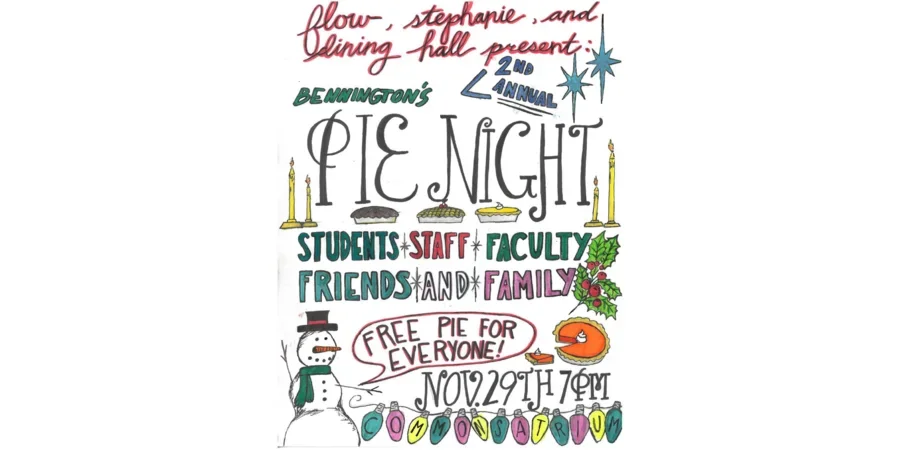 flow, stephanie, and
dining hall present:
BENNINGTON'S
2ND
ANNUAL
PIE NIGHT
STUDENTS * STAFF * FACULTY
FRIENDS * AND * FAMILY
FREE PIE FOR
EVERYONE!
NOV. 29TH 7PM
COMMONS ATRIUM